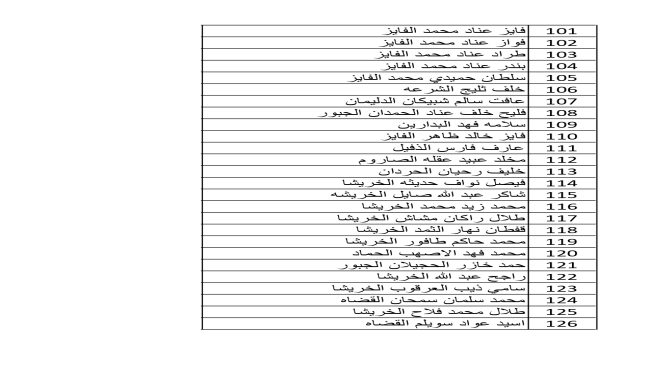 101 فايز عناد محمد الفايز
102 فواز عناد محمد الفايز
103 طراد عناد محمد الفايز
104 بندر عناد محمد الفايز
105 سلطان حميدي محمد الفايز
106 خلف ثليج الشرعه
107 عافت سالم شبيكان الدليمان
108 فليح خلف عناد الحمدان الجبور
109 سلامه فهد البدارين
110 فايز خالد ظاهر الفايز
111 عارف فارس الذفيل
112 مخلد عبيد عقله الصاروم
113 خليف رحيان الحردان
114 فيصل نواف حديثه الخريشا
115 شاكر عبد الله صايل الخريشه
116 محمد زيد محمد الخريشا
117 طلال راكان مشاش الخريشا
118 قفطان نهار الثمد الخريشا
119 محمد حاكم طافور الخريشا
120 محمد فهد الاصهب الحماد
121 حمد خازر الحجيلان الجبور
122 راجح عبد الله الخريشا
123 سامي ذيب العرقوب الخريشا
124 محمد سلمان سمحان القضاه
125 طلال محمد فلاح الخريشا
126 اسيد عواد سويلم القضاه